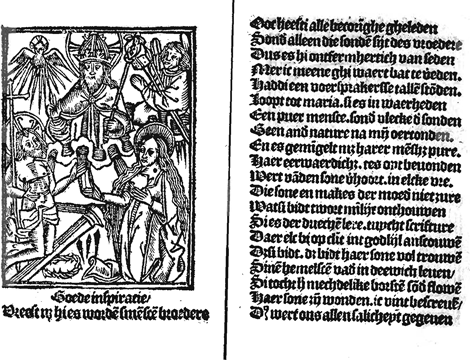 Goede inspiratie/
Vreest nz hi es wordē smēscē broedere
Ooc heeft alle becorighe gheleden
Sond alleen die sondē sijt des vroedere
Dus es hi ontfermherich van seden
Mer ic meene ghi waert bat te vredē.
Haddi een voersprakersse tallē stōdē.
Loopt tot maria. si es in waerheden
Een puer mensce. sond vlecke ō sonden
Geen and nature na mij oerconden.
En es gemīgelt mz harer mēschz pure.
Haer eerwaerdichz. es opt
Wert vādē sone ūhoort. in elcke vre.
Die sone en makes der moed niet zure
Watsi bidt twort nijt onthouwen
Si es der lere. tuycht scripture
Daer elc bi op clic int godlijc anscouwen
Drū bidt. dē bidt haer sone vol trouwen
Sinē hemelscē vad in deewich leuen/
Si tocht hē mechdelike borstē sōd flowē
Haer sone zijn wonden. ic vint bescreuē/
Dz wert ons allen salicheyt gegeuen